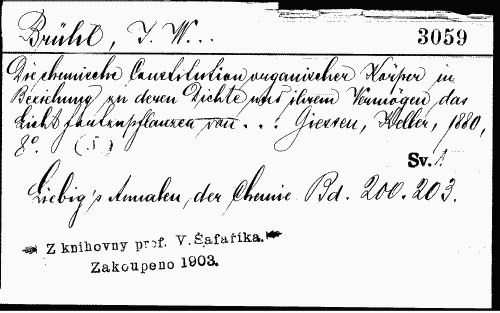 Brühl, J. W...
3059
Die chemische Constitution organischer Körper in
Beziehung zu deren Dichte und ihrem Vermögen das
Licht fortzupflanzen von... Giessen, Keller, 1880,
8°. (S)
Sv. 1
Liebig's Annalen der Chemie. Bd. 200. 203.
Z knihovny prof. V. Šafaříka.
Zakoupeno 1903.